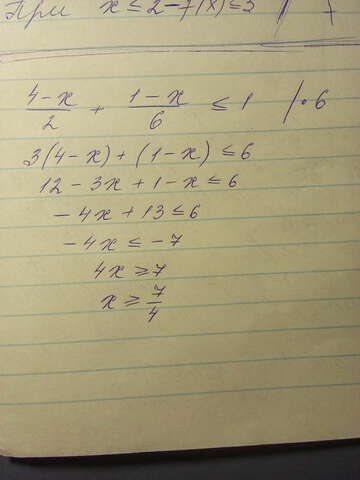 При x ≤ 2 - f(x) ≤ 3
(4-x)/2 + (1-x)/6 ≤ 1 |·6
3(4-x)+(1-x) ≤ 6
12-3x+1-x ≤ 6
-4x+13 ≤ 6
-4x ≤ -7
4x ≥ 7
x ≥ 7/4